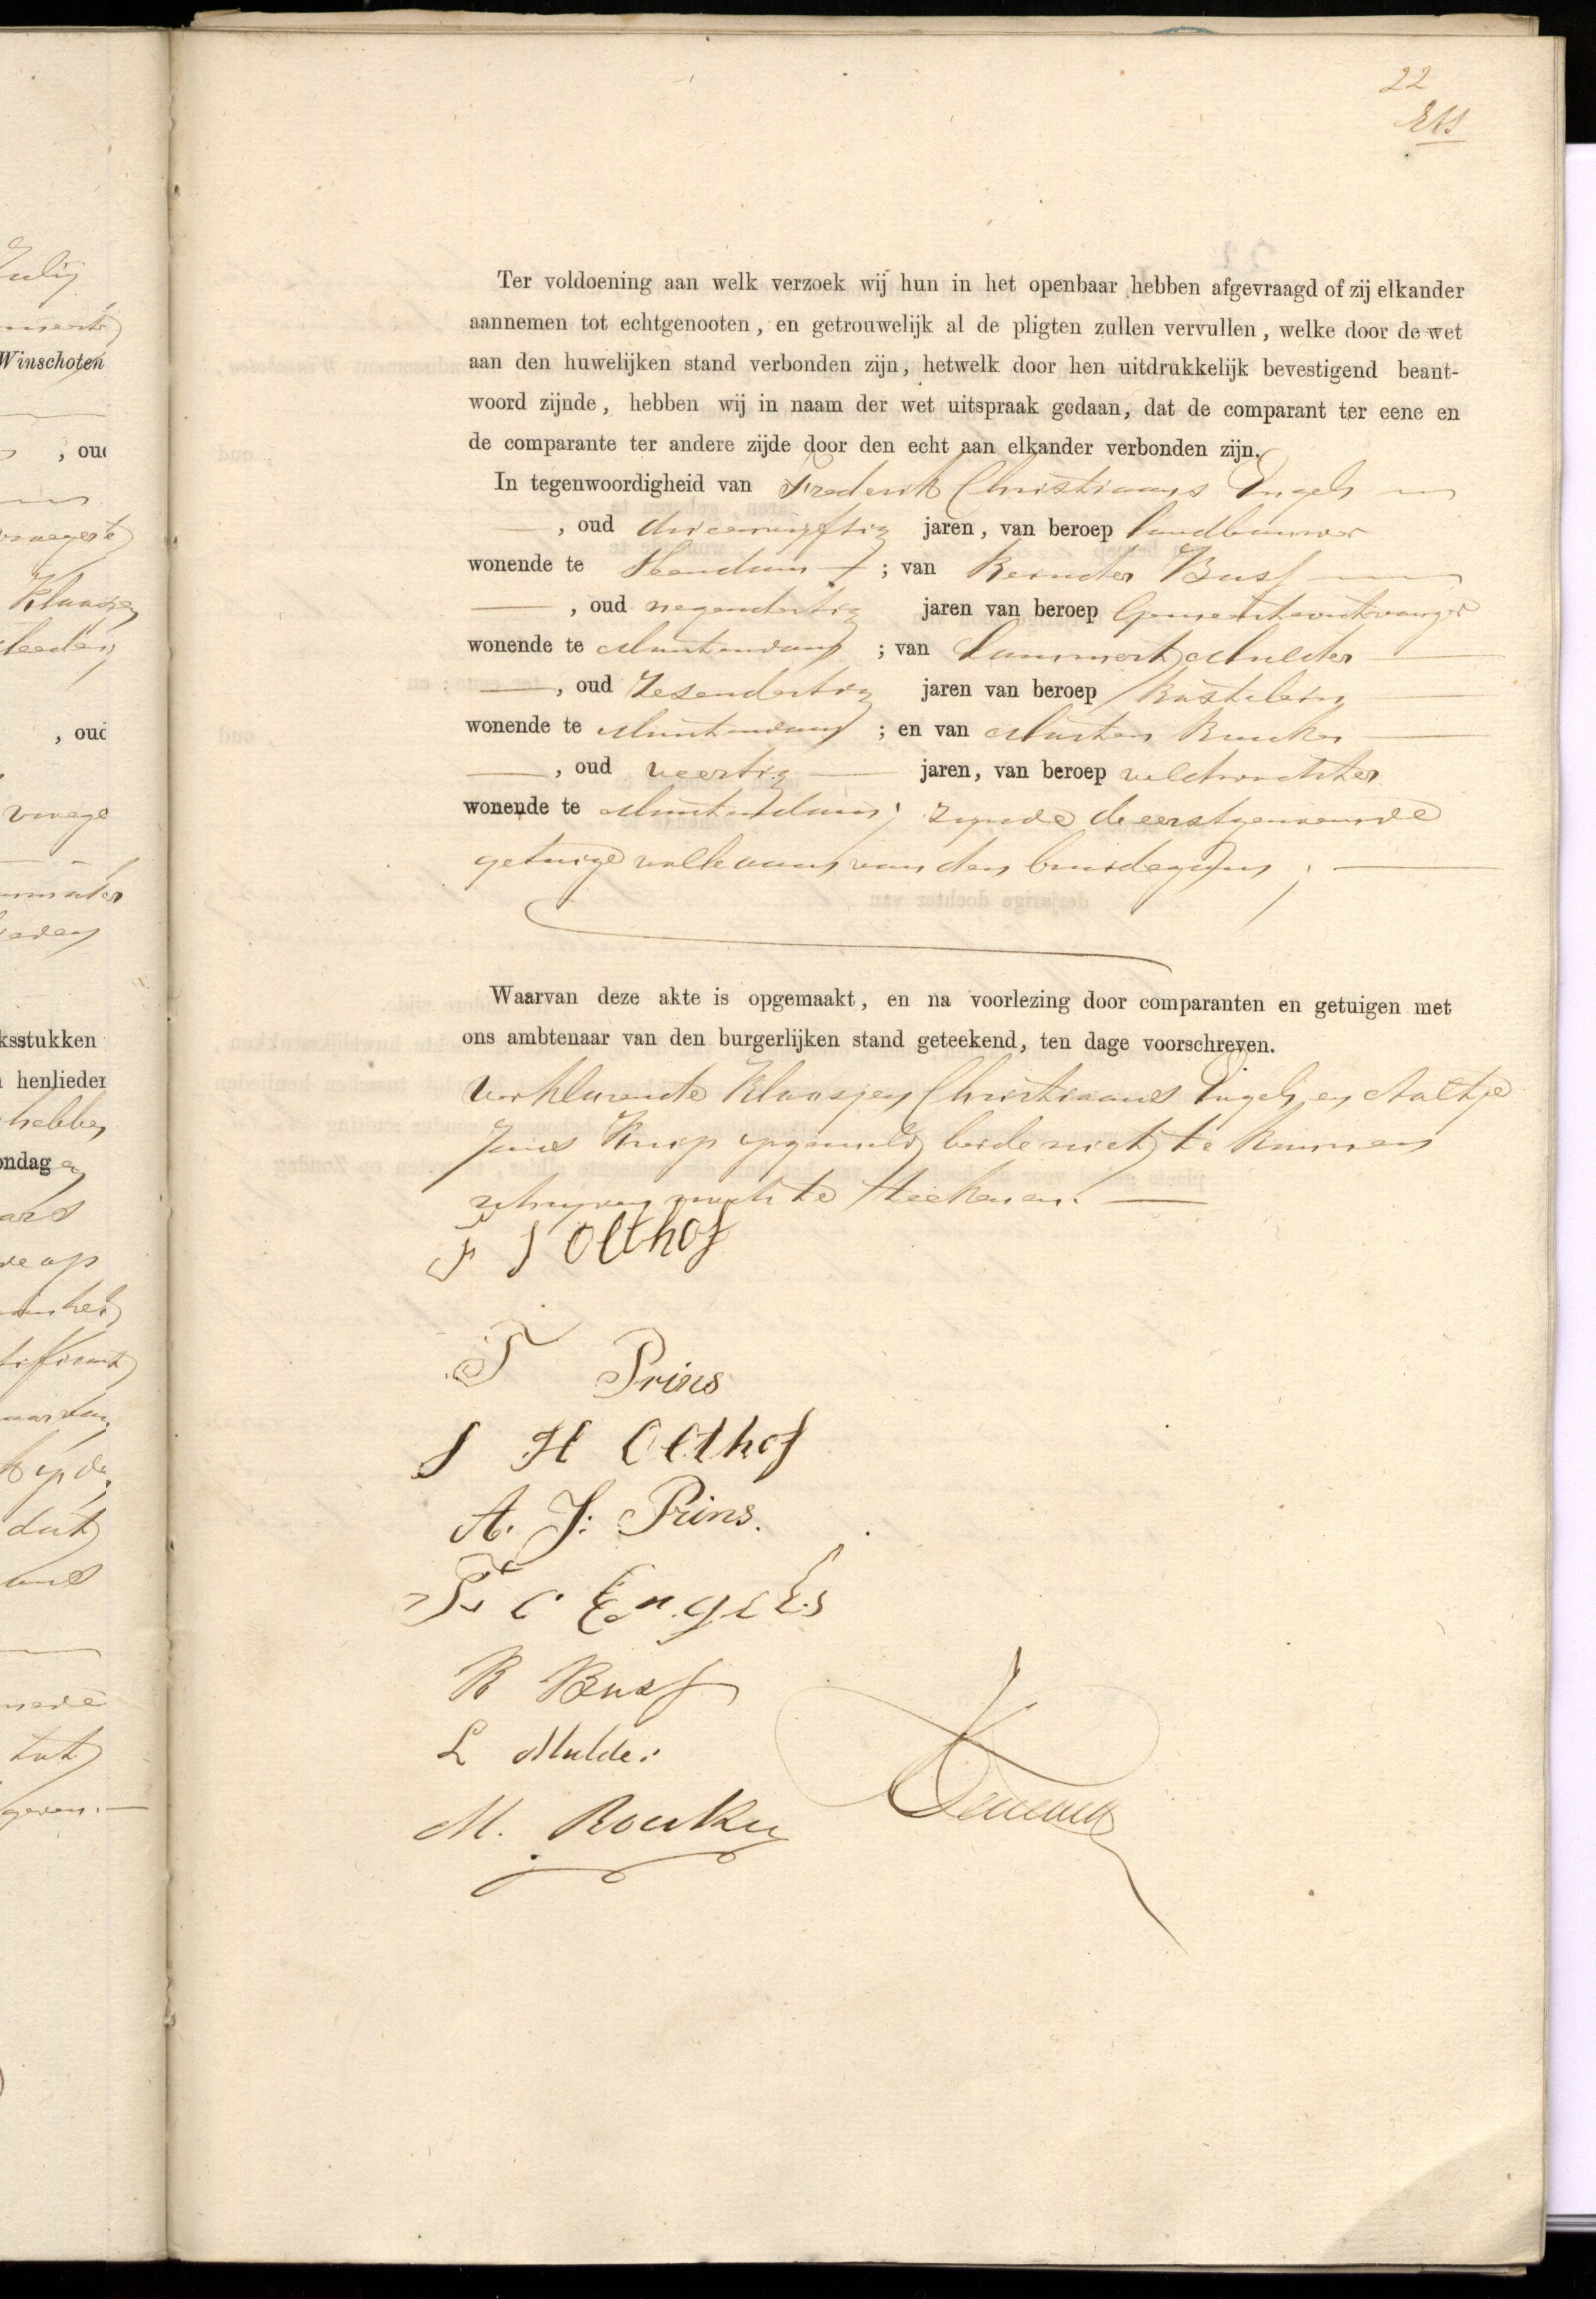 22
Ter voldoening aan welk verzoek wij hun in het openbaar hebben afgevraagd of zij elkander
aannemen tot echtgenooten, en getrouwelijk al de pligten zullen vervullen, welke door de wet
aan den huwelijken stand verbonden zijn, hetwelk door hen uitdrukkelijk bevestigend beant-
woord zijnde, hebben wij in naam der wet uitspraak gedaan, dat de comparant ter eene en
de comparante ter andere zijde door den echt aan elkander verbonden zijn.
In tegenwoordigheid van Frederik Christiaans Engels
, oud drieenvijftig jaren, van beroep landbouwer
wonende te ; van Reinder Buss
, oud negendertig jaren van beroep Gemeenteontvanger
wonende te Muntendam ; van Lammert Mulder
, oud zesendertig jaren van beroep kastelein
wonende te Muntendam ; en van Marten
, oud veertig jaren, van beroep veldwachter
wonende te Muntendam; zynde de eerstgenoemde
getuige volle oom van den bruidegom ;
Waarvan deze akte is opgemaakt, en na voorlezing door comparanten en getuigen met
ons ambtenaar van den burgerlijken stand geteekend, ten dage voorschreven.
Verklarende Klaasjen Christiaans Engels en Aaltje
Jans Knip opgemeld beide niet te kunnen
schryven noch te teekenen.
F J Olthof
T Prins
J H Olthof
A. J: Prins.
F. C Engels
R Buss
L Mulder
M.
Winschoten
, oud
Klaassen
, oud
ksstukken
henlieden
hebben
ondag en